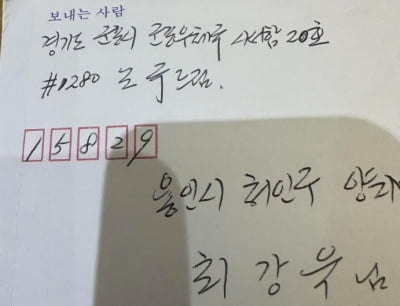 보내는 사람
경기도 군포시 군포우체국 사서함 20호
#1280 노 주드림.
15829
용인시 처인구 양지
최 강 욱 님